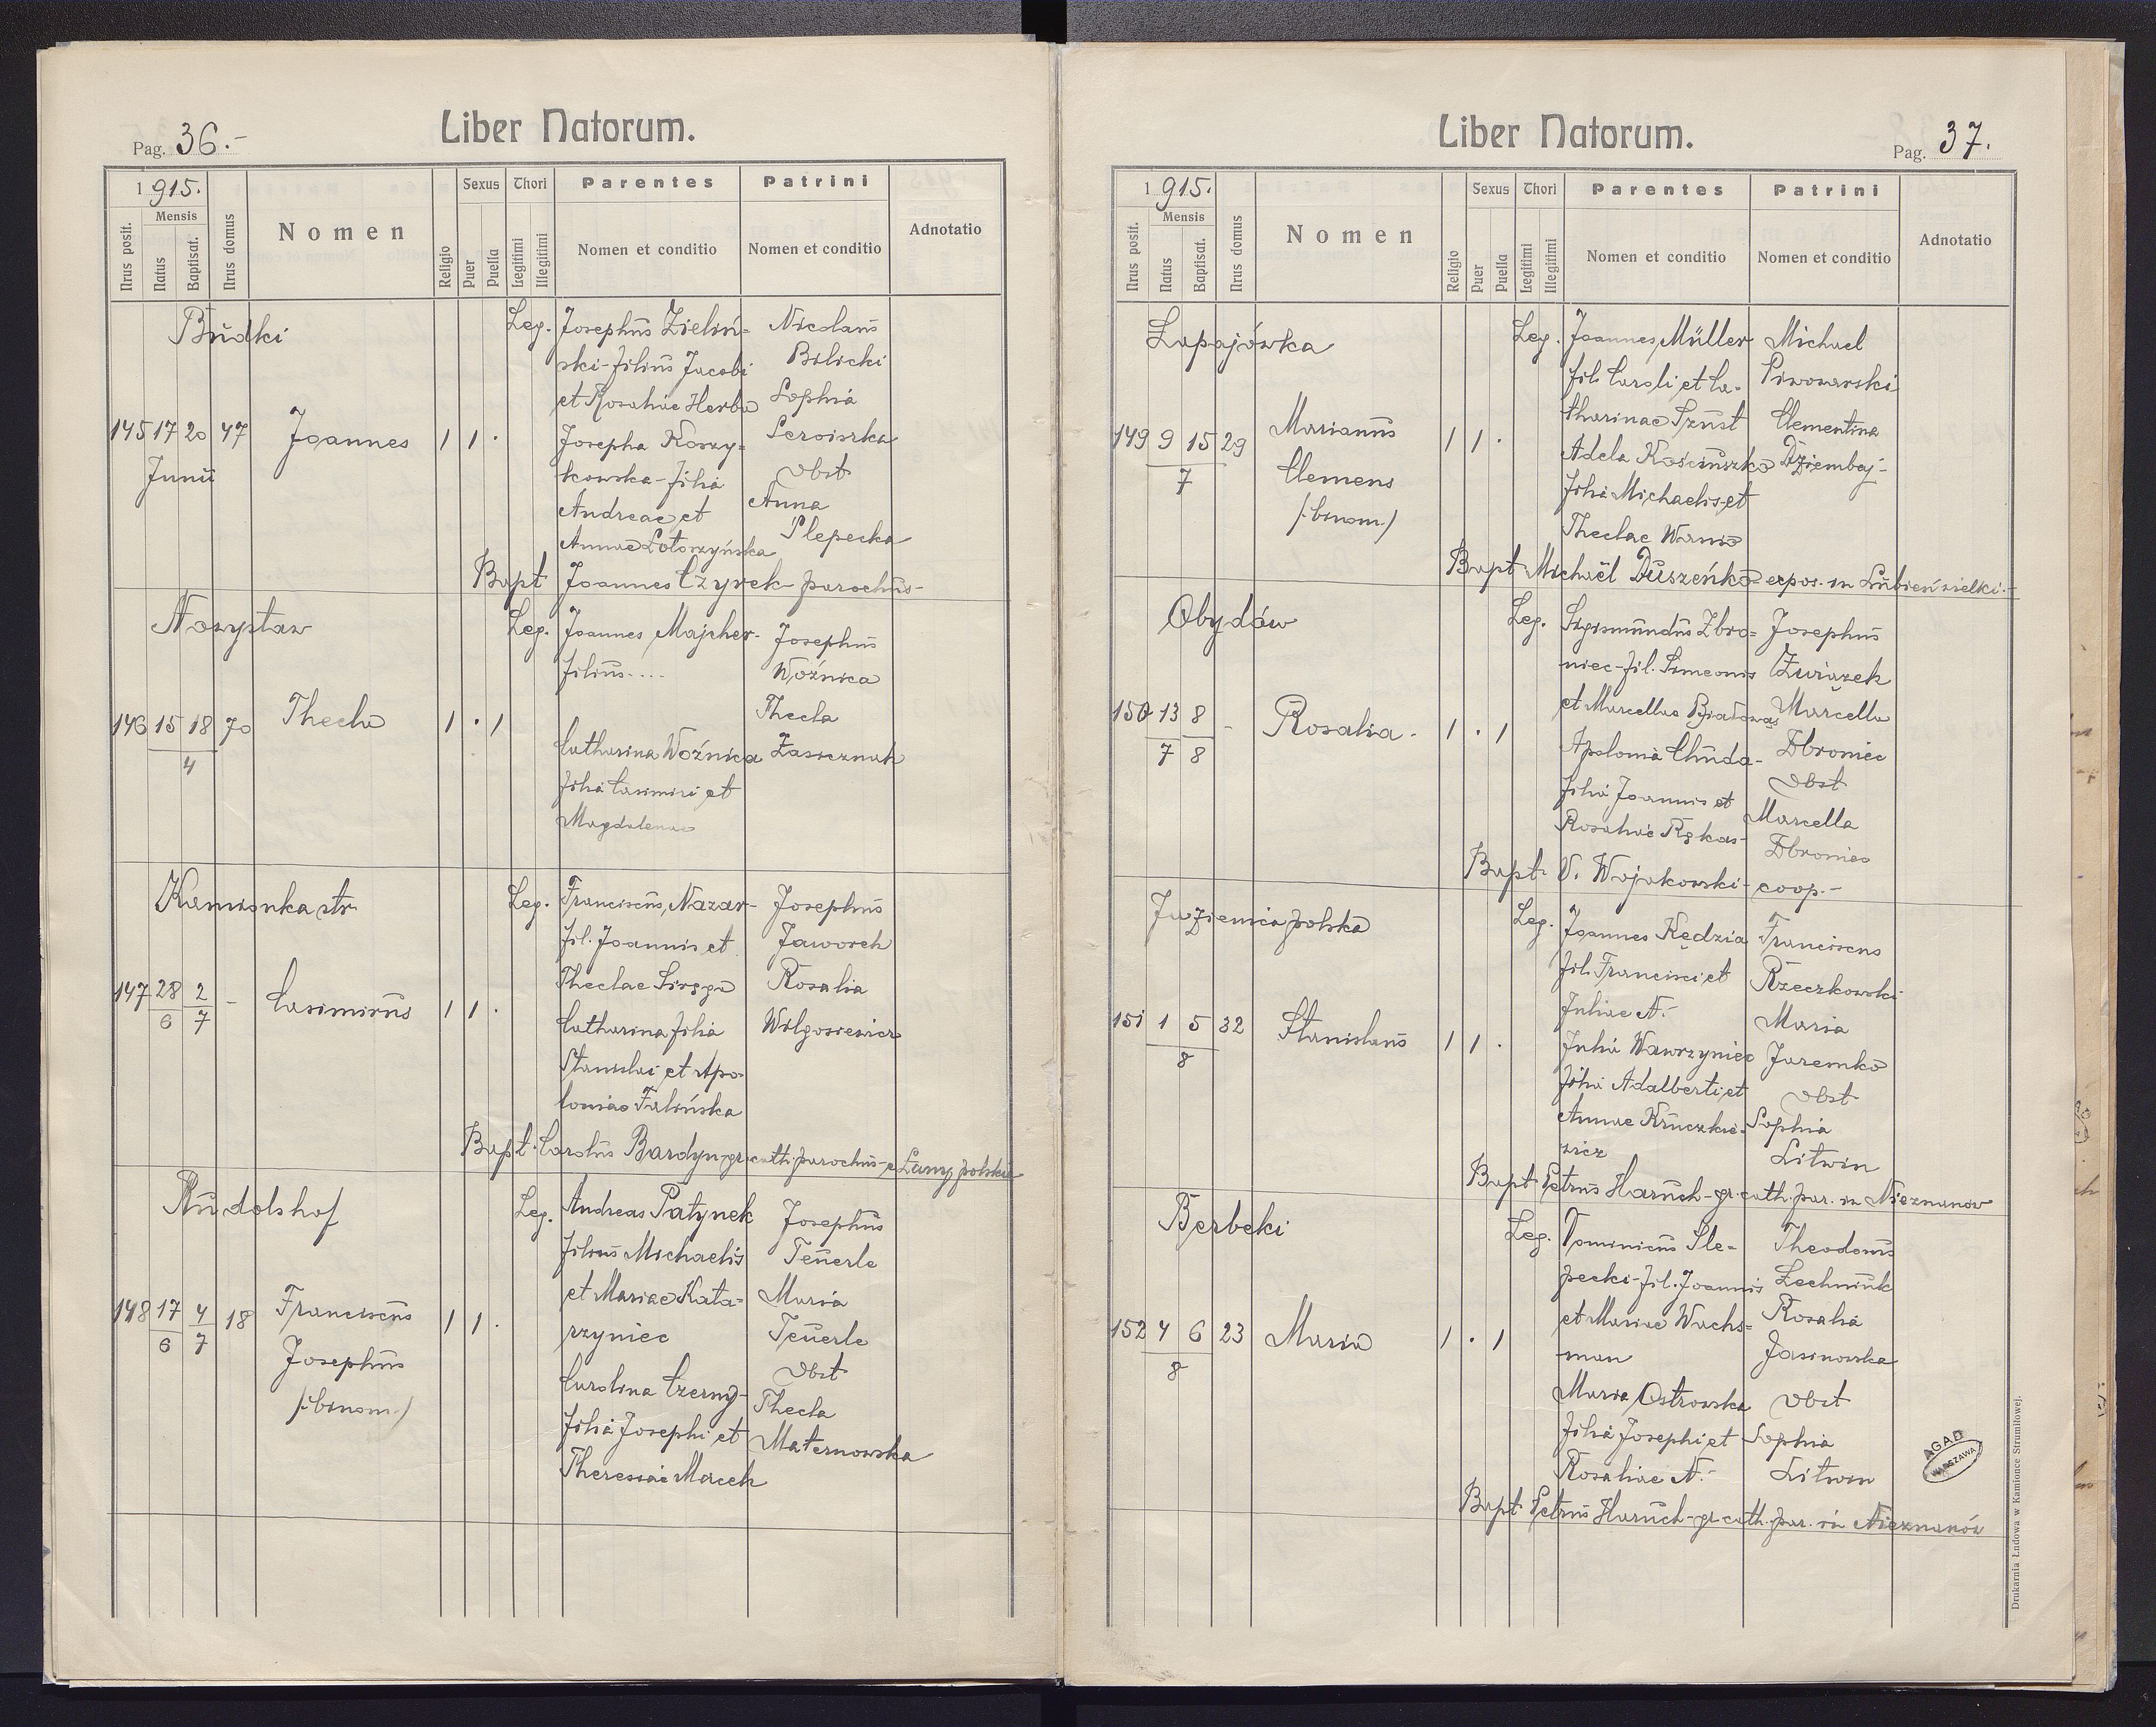 Pag. 36.-
Liber Natorum.
1915.
Nrus posit.
Mensis
Natus
Baptisat.
Nrus domus
Nomen
Religio
Sexus
Puer
Puella
Thori
Legitimi
Illegitimi
Parentes
Nomen et conditio
Patrini
Nomen et conditio
Adnotatio
Budki
145 17 20 47
Junii
Joannes
1 1 .
Leg.
Josephus Zieliń=
ski-filius Jacobi
et Rosaliae Herba
Josepha Koszy=
kowska-filia
Andreae et
Annae
Nicolaus
Bilicki
Sophia
vbst
Anna
Slepecka
Bapt Joannes Czyrek-parochus-
Nowystaw
146 15 18 70
4
Thecla
1 . 1
Leg.
Joannes Majcher-
filius....
Catharina Woźnica
filia Casimiri et
Magdalenae
Josephus
Woźnica
Thecla
Zasieznah
Kamionka str.
147 28 2 -
6 7
Casimirus
1 1 .
Leg.
Franciscus Nazar-
fil. Joannis et
Theclae
Catharina filia
Stanislai et Apo-
loniae Falińska
Josephus
Jaworek
Rosalia
Wilgosiewicz
Bapt. Carolus Bardyn-gr. cath. parochus-e Łany polskie
Rudolshof
148 17 4 18
6 7
Franciscus
Josephus
/:binom:/
1 1 .
Leg.
Andreas Patynek
filius Michaelis
et Mariae Kata=
rzyniec
Carolina Czerny-
filia Josephi et
Theresiae Marek
Josephus
Teuerle
Maria
Teuerle
vbst
Thecla
Maternowska
Liber Natorum.
Pag. 37.
1915.
Nrus posit.
Mensis
Natus
Baptisat.
Nrus domus
Nomen
Religio
Sexus
Puer
Puella
Thori
Legitimi
Illegitimi
Parentes
Nomen et conditio
Patrini
Nomen et conditio
Adnotatio
Łapajówka
149 9 15 29
7
Marianus
Clemens
/:binom:/
1 1 .
Leg.
Joannes Müller
fil. Caroli et Ca-
tharinae Szust
Adela Kościuszko
filia Michaelis et
Theclae Wania
Michael
Piwowarski
Clementina
Dziembaj-
Bapt Michaël Duszeńko-expos. in Lubień wielki.-
Obydów
150 13 8 -
7 8
Rosalia.
1 . 1
Leg.
Sigismundus Zbro=
niec-fil. Simeonis
et Marcellae
Apolonia Chuda-
filia Joannis et
Rosaliae Rękas-
Josephus
Związek
Marcella
Zbroniec
vbst
Marcella
Zbroniec
Bapt. V. Wojakowski-coop.-
Jazienica polska
151 1 5 32
8
Stanislaus
1 1 .
Leg.
Joannes Kędzia
fil. Francisci et
Juliae N.-
Julia Wawrzyniec
filia Adalberti et
Annae Kruczkie-
wicz
Franciscus
Rzeczkowski
Maria
Jaremko
vbst
Sophia
Litwin
Bapt Petrus Haruch-gr. cath. par. in Nieznanow
Berbeki
152 4 6 23
8
Maria
1 . 1
Leg.
Dominicus Sle-
pecki-fil. Joannis
et Mariae Wachs=
man
Maria Ostrowska
filia Josephi et
Rosaliae N.-
Theodorus
Lechniuk
Rosalia
Jasinowska
vbst
Sophia
Litwin
Bapt Petrus Haruch-gr-cath. par. in Nieznanów
AGAD
WARSZAWA
Drukarnia Ludowa w Kamionce Strumiłowej.